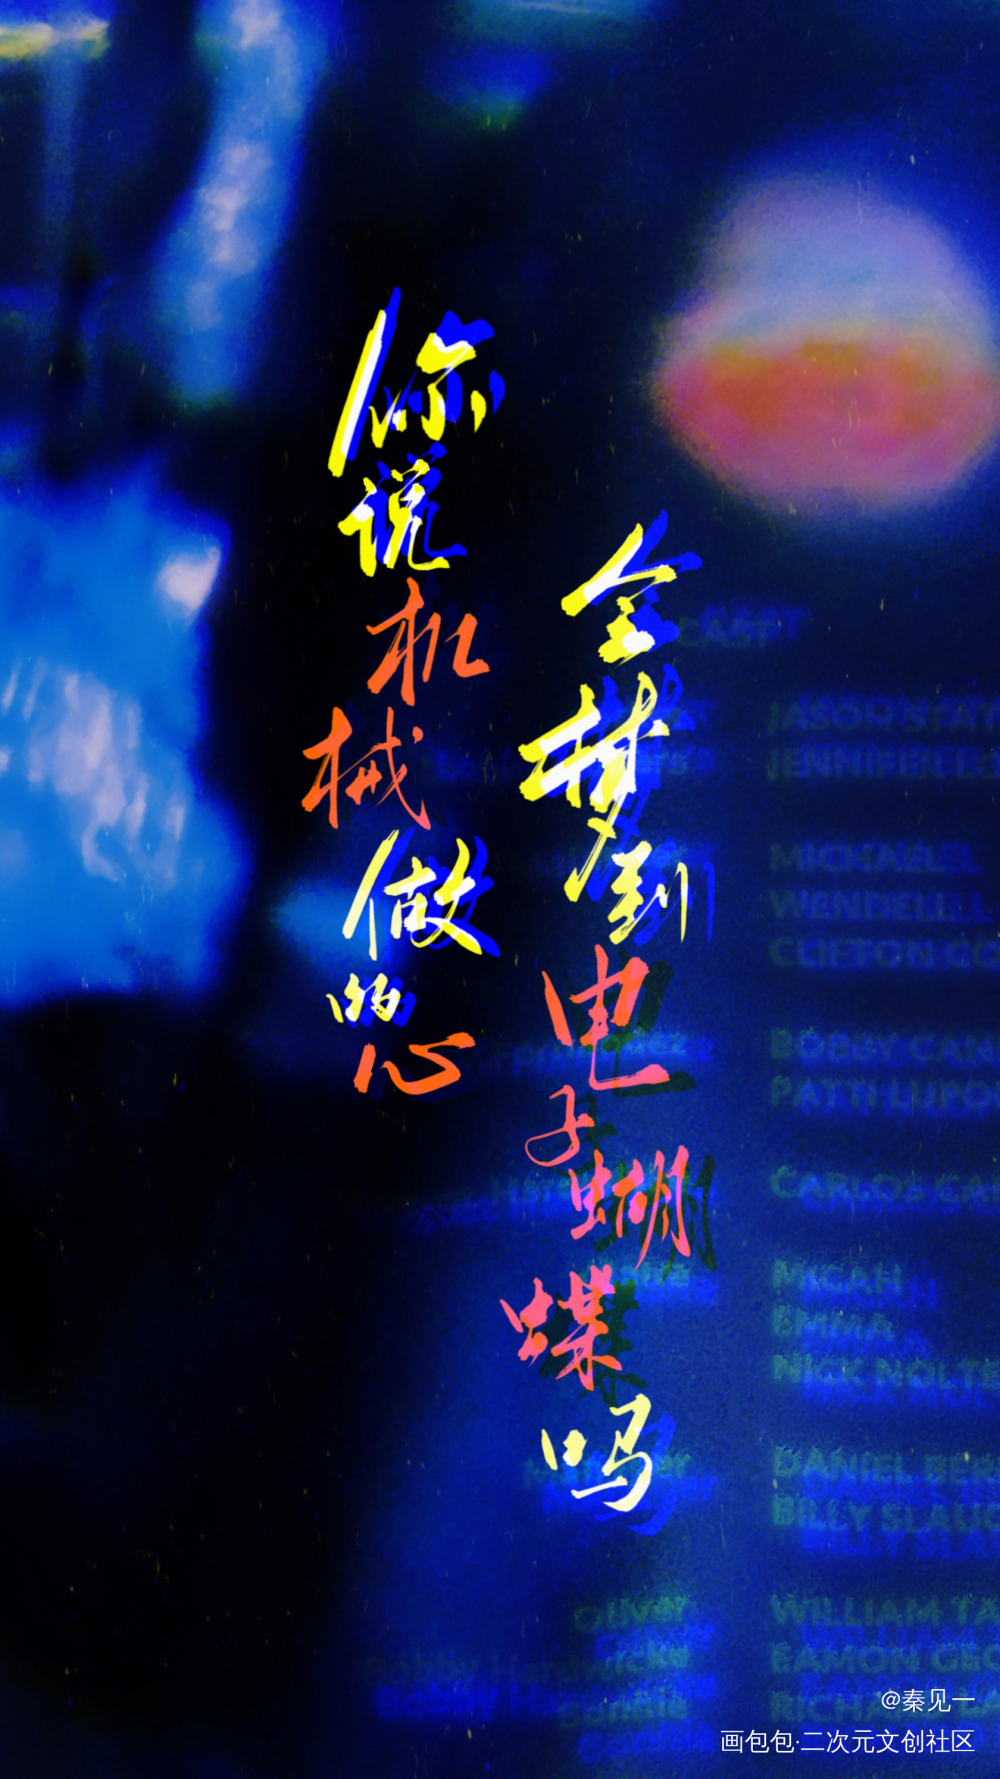 你说机械做的心
会梦到电子蝴蝶吗
CAST
JASON STAT
JENNIFER LO
MICHAEL
WENDELL
CLIFTON CO
BOBBY CAN
PATTI LUPO
CARLOS CA
MICAH
EMMA
NICK NOLTE
DANIEL BER
BILLY SLAUG
Oliver WILLIAM TA
Bobby Hardwicke EAMON GEO
RICHARD
@秦见一
画包包·二次元文创社区